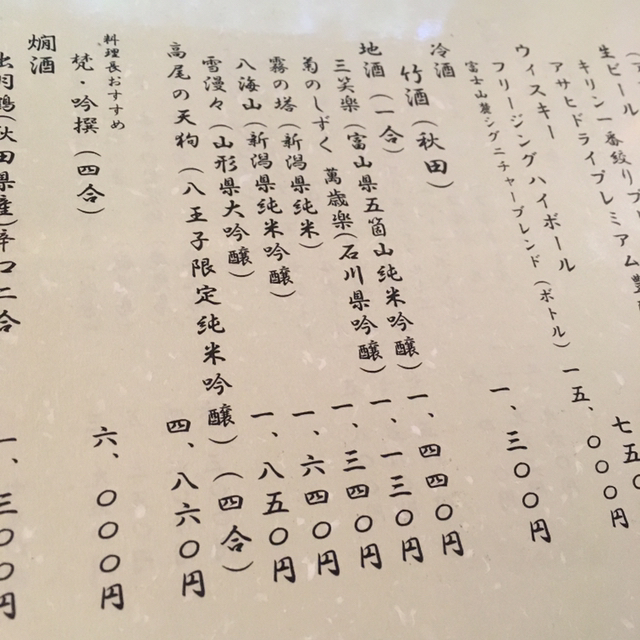 生ビール
キリン一番絞りプ
アサヒドライプレミアム豊
七五〇円
ウィスキー
フリージングハイボール
富士山麓シグニチャーブレンド(ボトル) 一五、〇〇〇円
冷酒
竹酒(秋田) 一、三〇〇円
地酒(一合)
三笑楽(富山県五箇山純米吟醸) 一、四四〇円
菊のしずく 萬歳楽(石川県吟醸) 一、一三〇円
霧の塔(新潟県純米) 一、三四〇円
八海山(新潟県純米吟醸) 一、六四〇円
雪漫々(山形県大吟醸) 一、八五〇円
高尾の天狗(八王子限定純米吟醸)(四合)
四、八六〇円
料理長おすすめ
梵・吟撰(四合) 六、〇〇〇円
燗酒
出羽鶴(秋田県産)辛口二合 一、三〇〇円